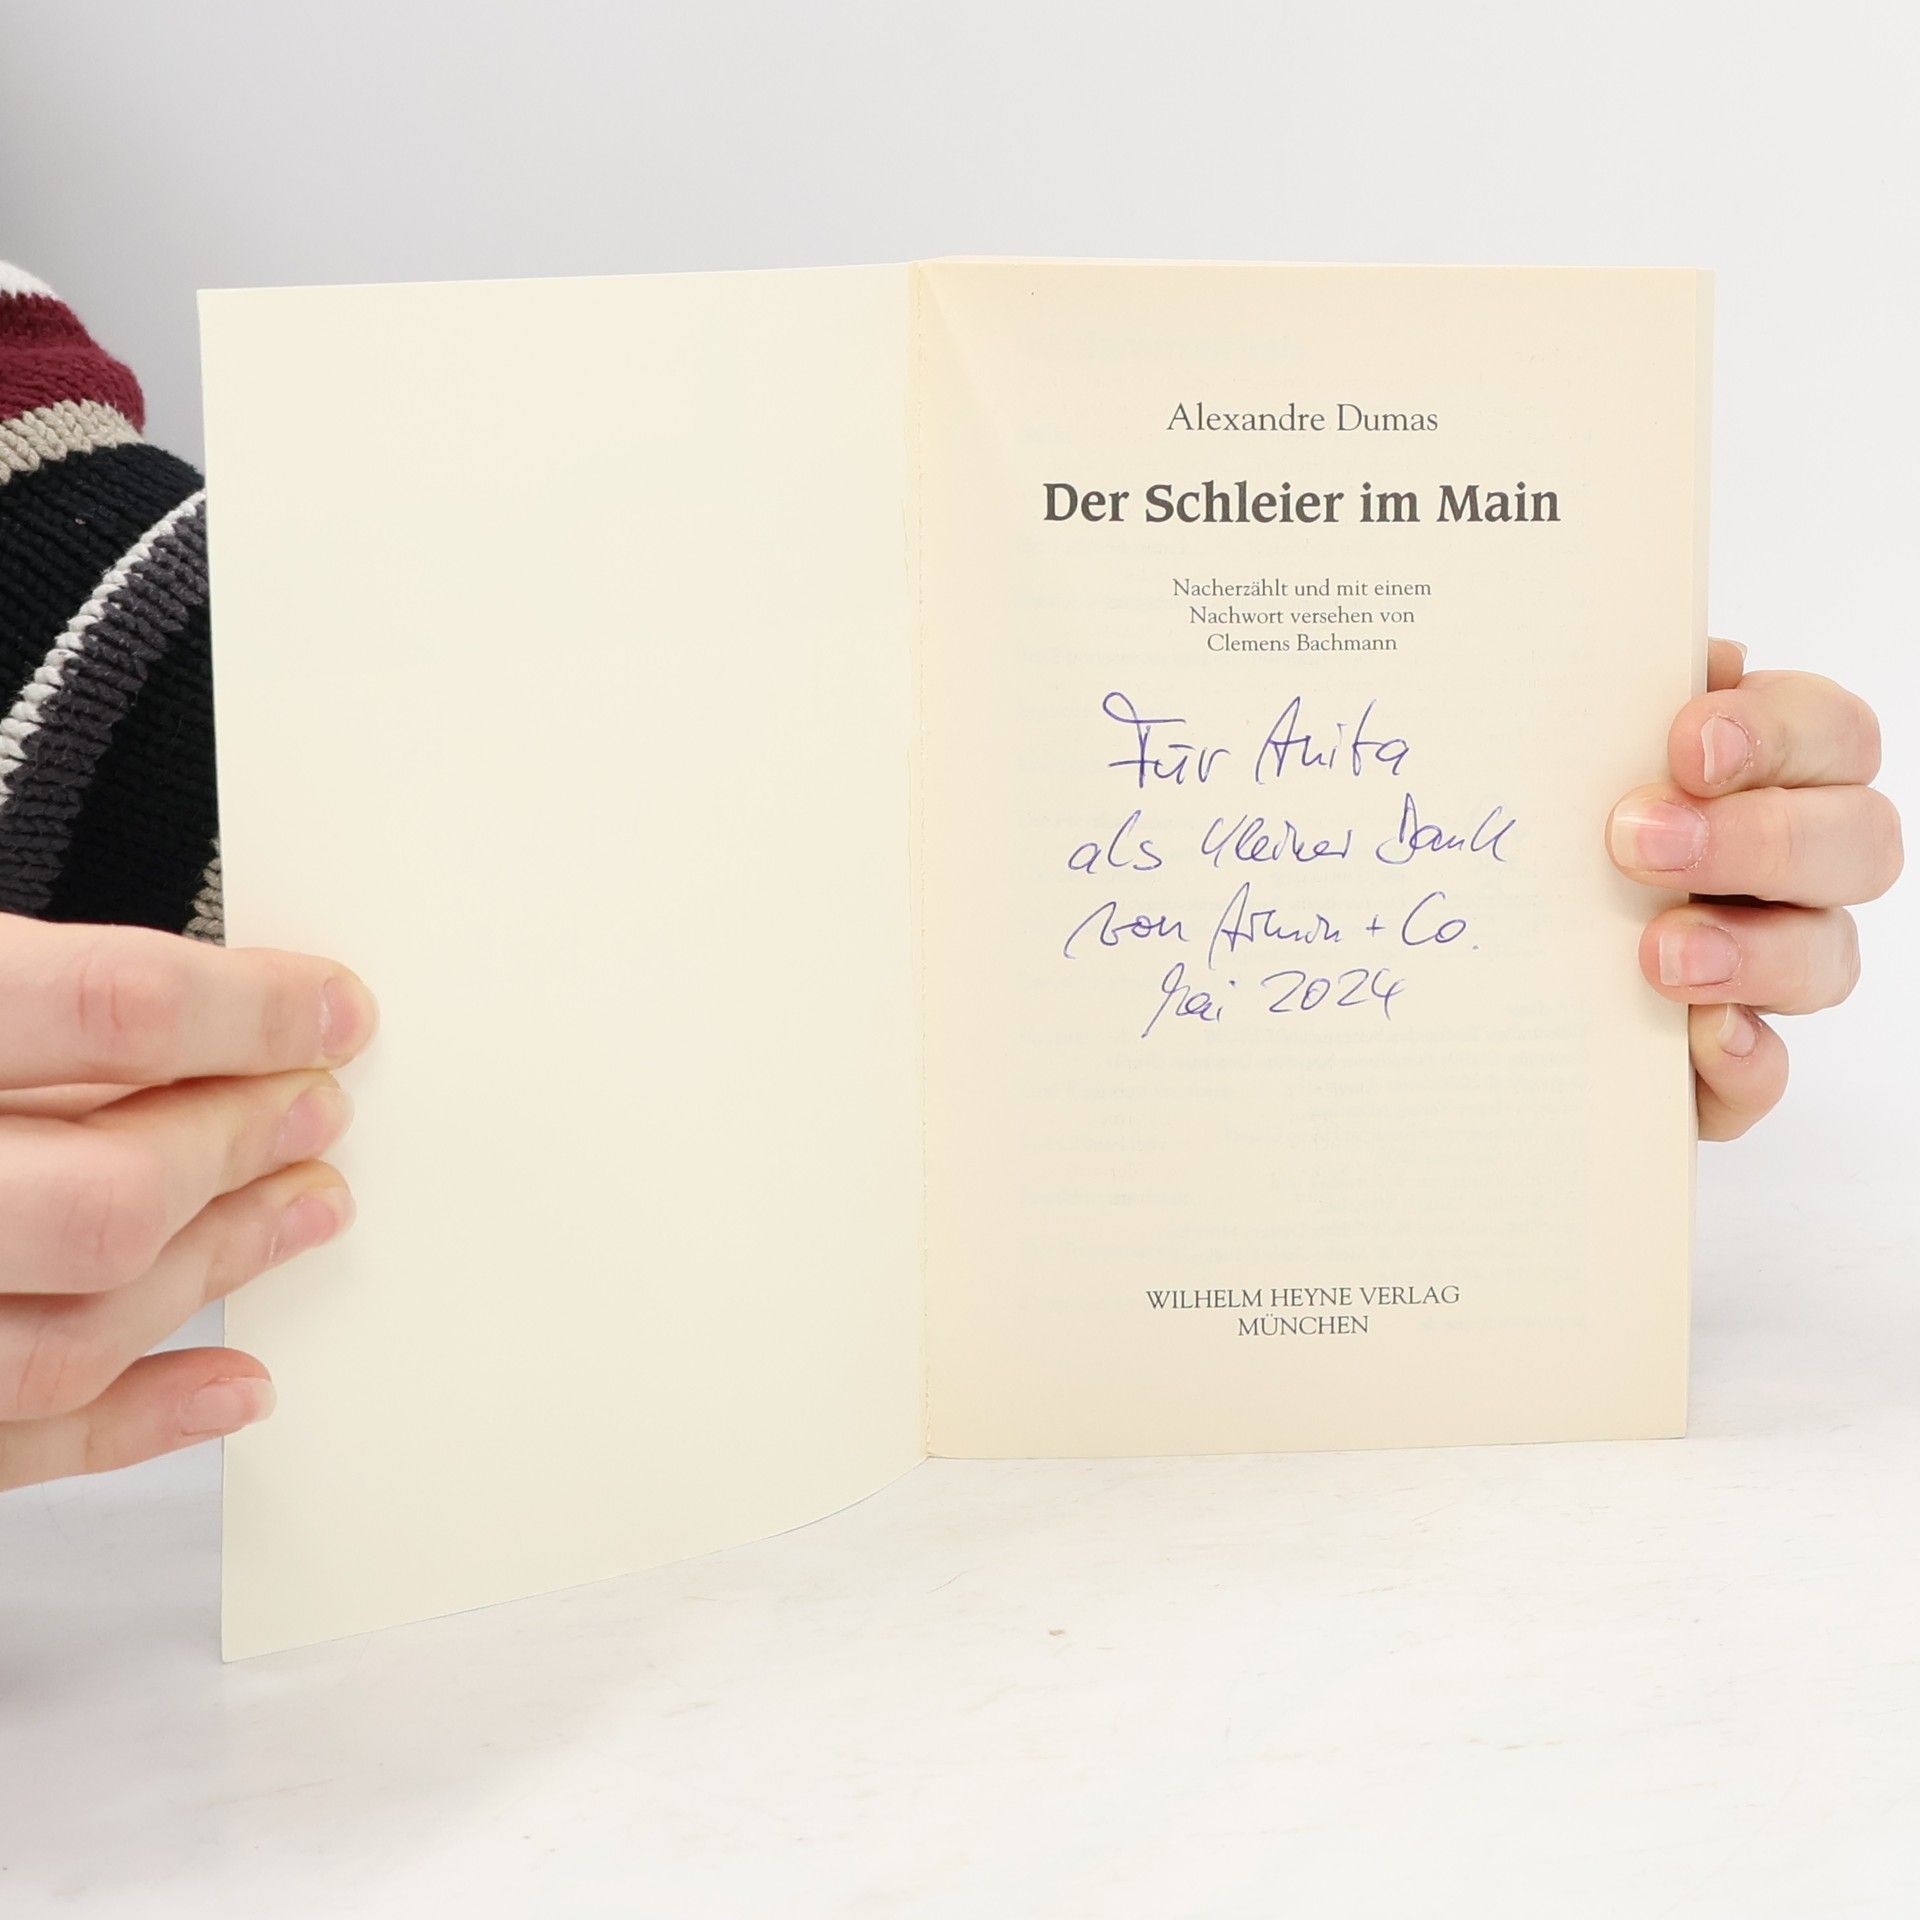 Alexandre Dumas
Der Schleier im Main
Nacherzählt und mit einem
Nachwort versehen von
Clemens Bachmann
Für Anita
als kleiner Dank
von Armin + Co.
Mai 2024
WILHELM HEYNE VERLAG
MÜNCHEN